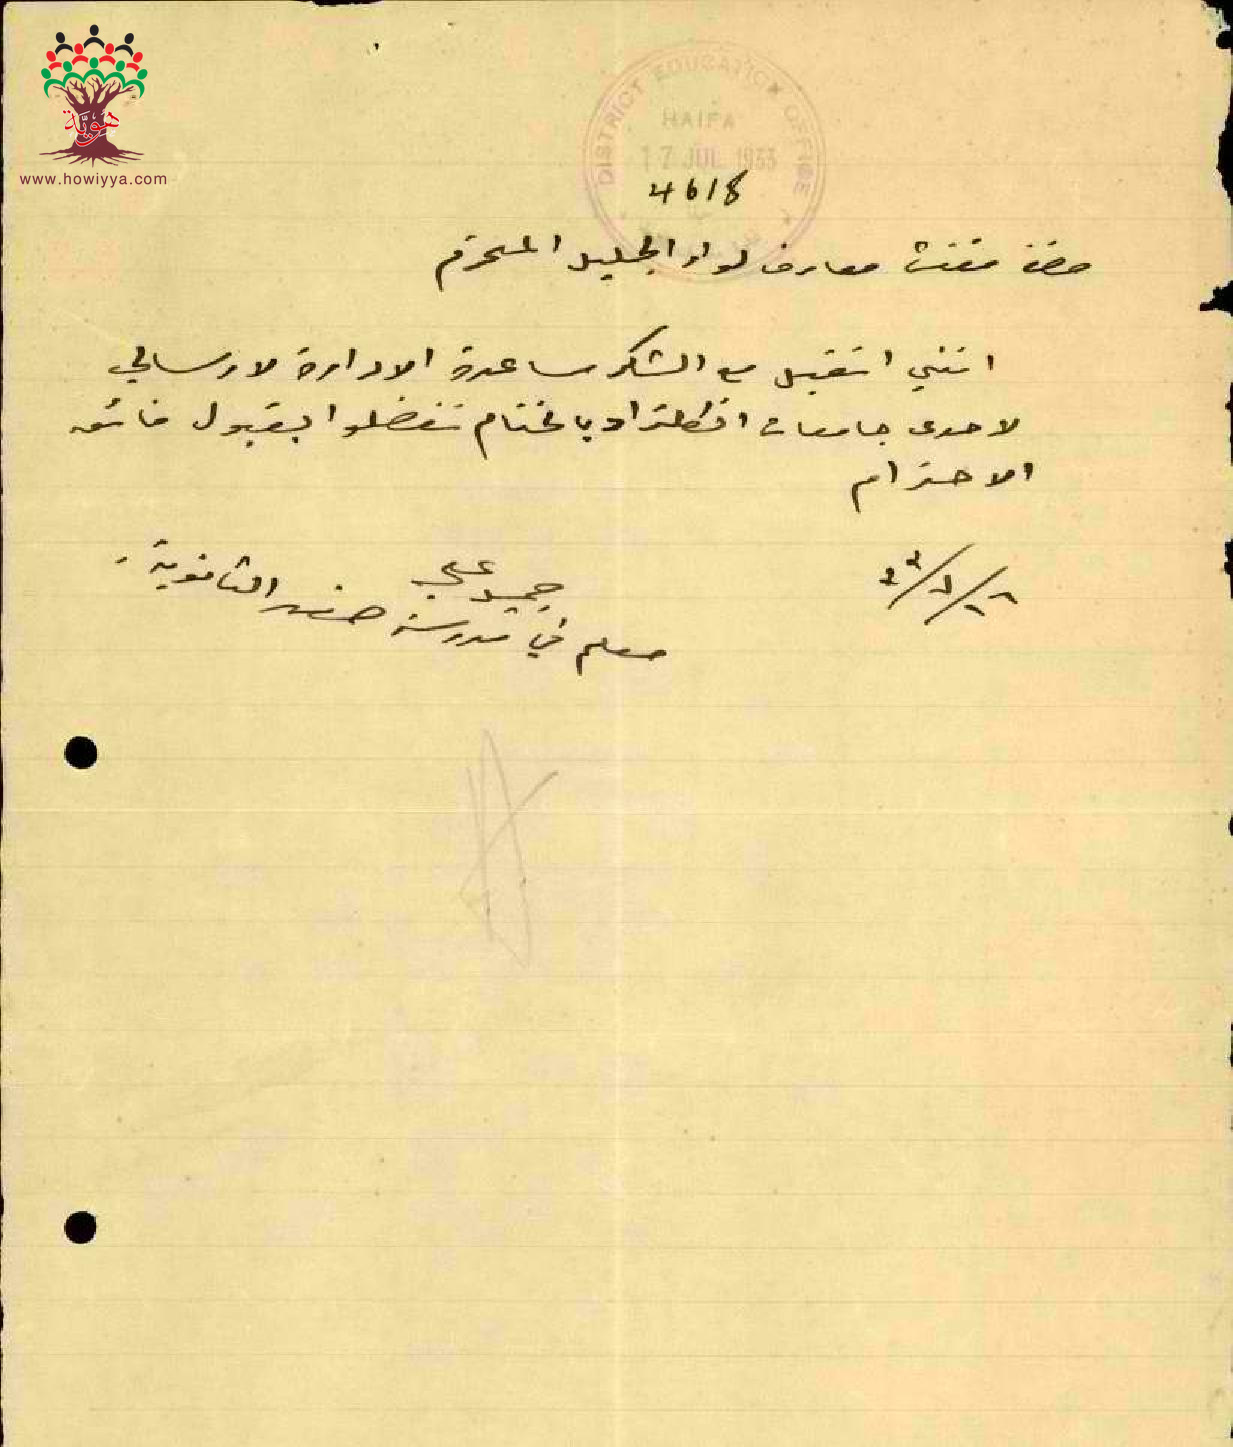 هوية
www.howiyya.com
DISTRICT EDUCATION OFFICE
HAIFA
17 JUL 1933
4618
حضرة مفتش معارف لواء الجليل المحترم
انني اتقبل مع الشكر مساعدة الادارة لارسالي
لاحدى جامعات انكلترا وبالختام تفضلوا بقبول فائق
الاحترام
جميل علي
معلم في مدرسة صفد الثانوية